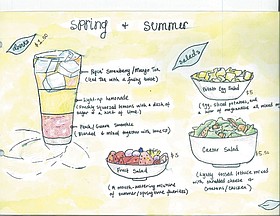 Spring + Summer
Drinks
$2.50
salads
Poppin' Strawberry/Mango Tea
(Iced Tea with a fruity twist)
Light-up lemonade
(Freshly squeezed lemons with a dash of
sugar & a hint of lime.)
Peach/Guava Smoothie
(Blended & mixed together with
Potato Egg Salad
(Egg, sliced potatoes, and
a tbsp of margarine all mixed
$5
Fruit Salad
(A mouth-watering mixture of
summer/springtime favorites)
$5
Caesar Salad
(Lightly tossed lettuce mixed
with shredded cheese &
croutons/chicken)
$5